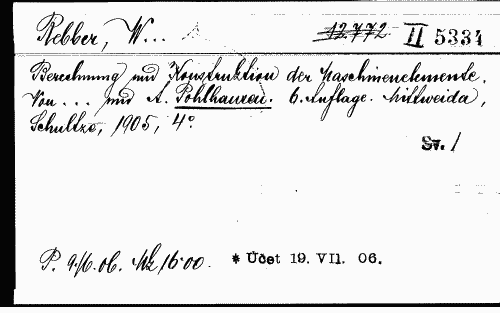 Rebber, W... 12.772 II 5334
Berechnung und Konstruktion der Maschinenelemente.
Von ... und A. Pohlhausen. 6. Auflage. Mittweida,
Schultze, 1905, 4°
Sv. /
P. 9./6. 06. Mk 16·00. * Účet 19. VII. 06.